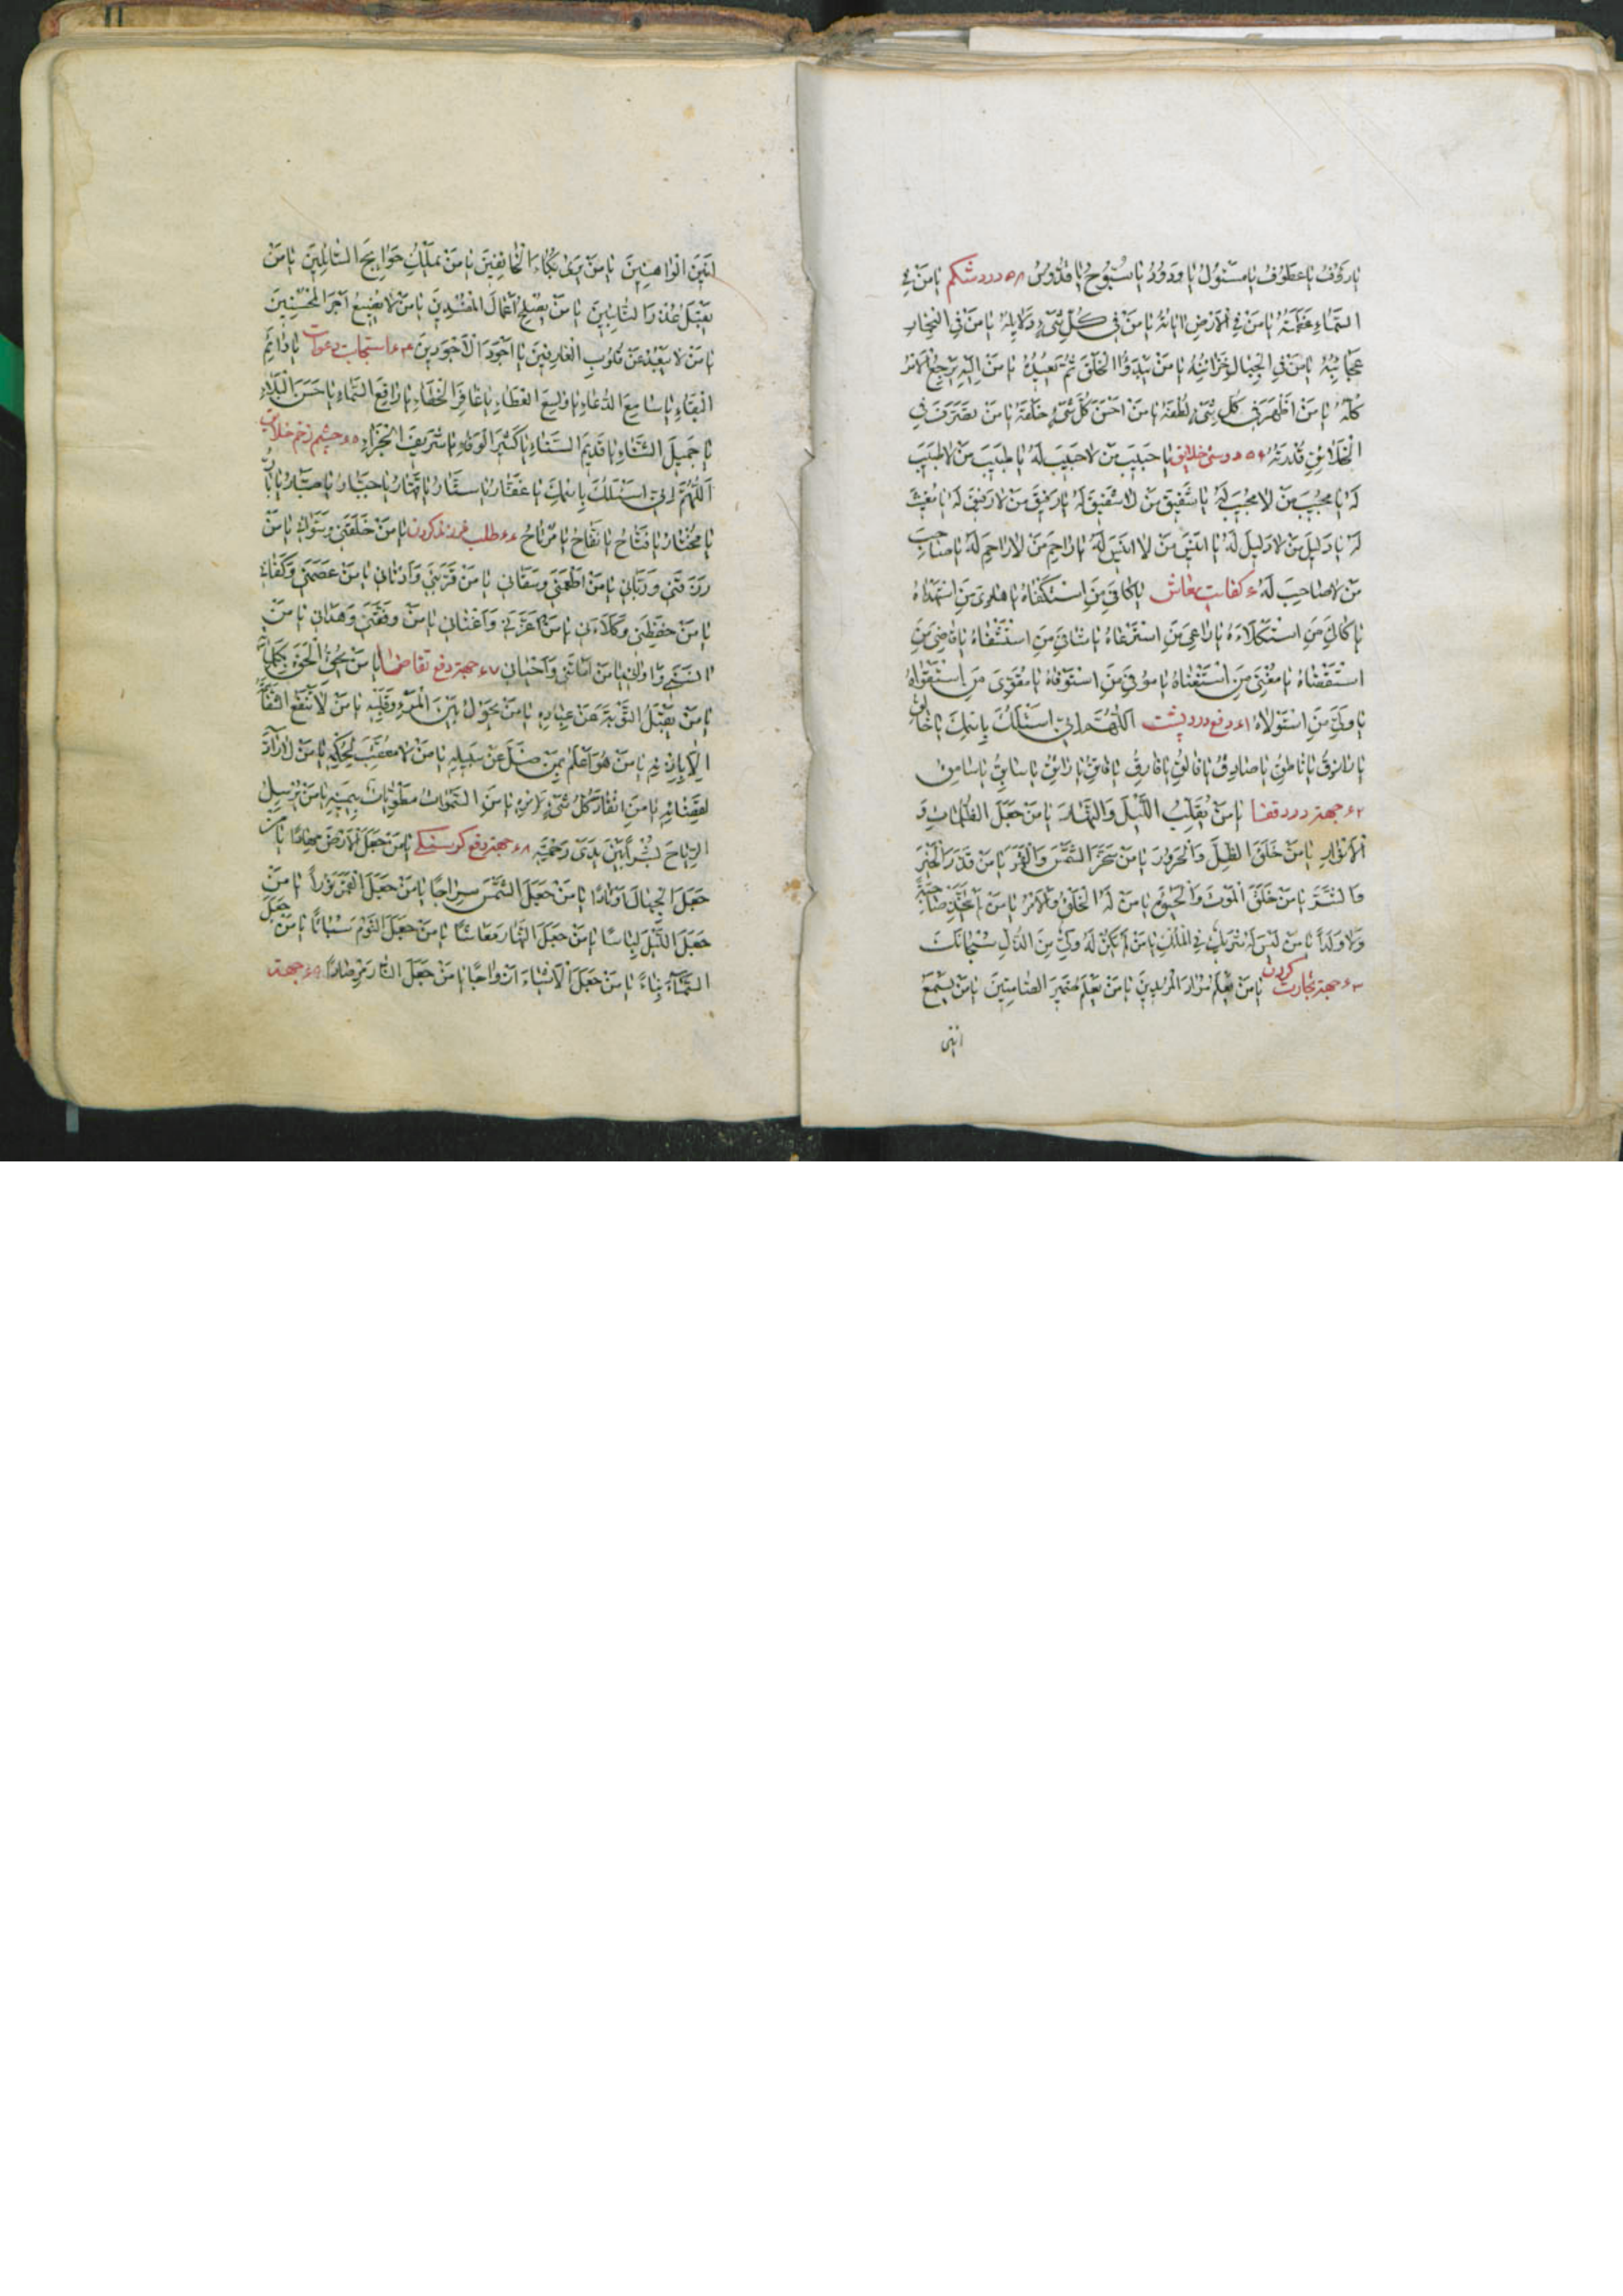 یٰا رَؤُفُ یٰا عَطُوفُ یٰا مَسْئُولُ یٰا وَدُودُ یٰا سُبُّوحُ یٰا قُدُّوسُ ۵۸ درد شکم یٰا مَنْ فِی
السَّمٰاءِ عَظَمَتُهُ یٰا مَنْ فِی الْاَرْضِ اٰیٰاتُهُ یٰا مَنْ فِی کُلِّ شَیْءٍ دَلٰایِلُهُ یٰا مَنْ فِی الْبِحٰارِ
عَجٰائِبُهُ یٰا مَنْ فِی الْجِبٰالِ خَزٰائِنُهُ یٰا مَنْ یَبْدَؤُا الْخَلْقَ ثُمَّ یُعِیدُهُ یٰا مَنْ اِلَیْهِ یَرْجِعُ الْاَمْرُ
کُلُّهُ یٰا مَنْ اَظْهَرَ فِی کُلِّ شَیْءٍ لُطْفَهُ یٰا مَنْ اَحْسَنَ کُلَّ شَیْءٍ خَلْقَهُ یٰا مَنْ تَصَرَّفَ فِی
الْخَلٰائِقِ قُدْرَتُهُ ۵۹ دوستی خلایق یٰا حَبِیبَ مَنْ لٰا حَبِیبَ لَهُ یٰا طَبِیبَ مَنْ لٰا طَبِیبَ
لَهُ یٰا مُجِیبَ مَنْ لٰا مُجِیبَ لَهُ یٰا شَفِیقَ مَنْ لٰا شَفِیقَ لَهُ یٰا رَفِیقَ مَنْ لٰا رَفِیقَ لَهُ یٰا مُغِیثَ
لَهُ یٰا دَلِیلَ مَنْ لٰا دَلِیلَ لَهُ یٰا اَنِیسَ مَنْ لٰا اَنِیسَ لَهُ یٰا رٰاحِمَ مَنْ لٰا رٰاحِمَ لَهُ یٰا صٰاحِبَ
مَنْ لٰا صٰاحِبَ لَهُ ۶۰ کفایت معاش یٰا کٰافِیَ مَنِ اسْتَکْفٰاهُ یٰا هٰادِیَ مَنِ اسْتَهْدٰاهُ
یٰا کٰالِیَ مَنِ اسْتَکْلَاءَهُ یٰا رٰاعِیَ مَنِ اسْتَرْعٰاهُ یٰا شٰافِیَ مَنِ اسْتَشْفٰاهُ یٰا قٰاضِیَ مَنِ
اسْتَقْضٰاهُ یٰا مُغْنِیَ مَنِ اسْتَغْنٰاهُ یٰا مُوفِیَ مَنِ اسْتَوْفٰاهُ یٰا مُقَوِّیَ مَنِ اسْتَقْوٰاهُ
یٰا وَلِیَّ مَنِ اسْتَوْلٰاهُ ۶۱ دفع درد پشت اَللّٰهُمَّ اِنِّی اَسْئَلُکَ بِاسْمِکَ یٰا خٰالِقُ
یٰا رٰازِقُ یٰا نٰاطِقُ یٰا صٰادِقُ یٰا فٰالِقُ یٰا فٰارِقُ یٰا فٰاتِقُ یٰا رٰاتِقُ یٰا سٰابِقُ یٰا سٰامِقُ
۶۲ جهة درد قفا یٰا مَنْ یُقَلِّبُ اللَّیْلَ وَالنَّهٰارَ یٰا مَنْ جَعَلَ الظُّلُمٰاتِ وَ
الْاَنْوٰارِ یٰا مَنْ خَلَقَ الظِّلَّ وَالْحَرُورَ یٰا مَنْ سَخَّرَ الشَّمْسَ وَالْقَمَرَ یٰا مَنْ قَدَّرَ الْخَیْرَ
وَالشَّرَّ یٰا مَنْ خَلَقَ الْمَوْتَ وَالْحَیٰوةَ یٰا مَنْ لَهُ الْخَلْقُ وَالْاَمْرُ یٰا مَنْ لَمْ یَتَّخِذْ صٰاحِبَةً
وَلٰا وَلَداً یٰا مَنْ لَیْسَ لَهُ شَرِیکٌ فِی الْمُلْکِ یٰا مَنْ لَمْ یَکُنْ لَهُ وَلِیٌّ مِنَ الذُّلِّ سُبْحٰانَکَ
۶۳ جهة تجارت کردن یٰا مَنْ یَعْلَمُ مُرٰادَ الْمُرِیدِینَ یٰا مَنْ یَعْلَمُ ضَمِیرَ الصّٰامِتِینَ یٰا مَنْ یَسْمَعُ
انین
اَنِینَ الْوٰاهِنِینَ یٰا مَنْ یَرٰی بُکٰاءَ الْخٰائِفِینَ یٰا مَنْ یَمْلِکُ حَوٰایِجَ السّٰائِلِینَ یٰا مَنْ
یَقْبَلُ عُذْرَ التّٰائِبِینَ یٰا مَنْ لٰا یُصْلِحُ اَعْمٰالَ الْمُفْسِدِینَ یٰا مَنْ لٰا یُضِیعُ اَجْرَ الْمُحْسِنِینَ
یٰا مَنْ لٰا یَبْعُدُ عَنْ قُلُوبِ الْعٰارِفِینَ یٰا اَجْوَدَ الْاَجْوَدِینَ ۶۴ استجابت دعوات یٰا دٰائِمَ
الْبَقٰاءِ یٰا سٰامِعَ الدُّعٰاءِ یٰا وٰاسِعَ الْعَطٰاءِ یٰا غٰافِرَ الْخَطٰاءِ یٰا رٰافِعَ السَّمٰاءِ یٰا حَسَنَ الْبَلٰاءِ
یٰا جَمِیلَ الثَّنٰاءِ یٰا قَدِیمَ السَّنٰاءِ یٰا کَثِیرَ الْوَفٰاءِ یٰا شَرِیفَ الْجَزٰاءِ ۶۵ چشم زخم خلایق
اَللّٰهُمَّ اِنِّی اَسْئَلُکَ بِاسْمِکَ یٰا غَفّٰارُ یٰا سَتّٰارُ یٰا قَهّٰارُ یٰا جَبّٰارُ یٰا صَبّٰارُ یٰا بٰارُّ
یٰا مُخْتٰارُ یٰا فَتّٰاحُ یٰا نَفّٰاحُ یٰا مُرْتٰاحُ ۶۶ طلب فرزند کردن یٰا مَنْ خَلَقَنِی وَسَوّٰانِی یٰا مَنْ
رَزَقَنِی وَرَبّٰانِی یٰا مَنْ اَطْعَمَنِی وَسَقٰانِی یٰا مَنْ قَرَّبَنِی وَاَدْنٰانِی یٰا مَنْ عَصَمَنِی وَکَفٰانِی
یٰا مَنْ حَفِظَنِی وَکَلَاءَنِی یٰا مَنْ اَعَزَّنِی وَاَغْنٰانِی یٰا مَنْ وَفَّقَنِی وَهَدٰانِی یٰا مَنْ
اٰنَسَنِی وَاٰوٰانِی یٰا مَنْ اَمٰاتَنِی وَاَحْیٰانِی ۶۷ جهة دفع تقاضها یٰا مَنْ یُحِقُّ الْحَقَّ بِکَلِمٰاتِهِ
یٰا مَنْ یَقْبَلُ التَّوْبَةَ عَنْ عِبٰادِهِ یٰا مَنْ یَحُولُ بَیْنَ الْمَرْءِ وَقَلْبِهِ یٰا مَنْ لٰا تَنْفَعُ الشَّفٰاعَةُ
اِلّٰا بِاِذْنِهِ یٰا مَنْ هُوَ اَعْلَمُ بِمَنْ ضَلَّ عَنْ سَبِیلِهِ یٰا مَنْ لٰا مُعَقِّبَ لِحُکْمِهِ یٰا مَنْ لٰا رٰادَّ
لِقَضٰائِهِ یٰا مَنِ انْقٰادَ کُلُّ شَیْءٍ لِاَمْرِهِ یٰا مَنِ السَّمٰوٰاتُ مَطْوِیّٰاتٌ بِیَمِینِهِ یٰا مَنْ یُرْسِلُ
الرِّیٰاحَ بُشْراً بَیْنَ یَدَیْ رَحْمَتِهِ ۶۸ جهة دفع کرسنکی یٰا مَنْ جَعَلَ الْاَرْضَ مِهٰاداً یٰا مَنْ
جَعَلَ الْجِبٰالَ اَوْتٰاداً یٰا مَنْ جَعَلَ الشَّمْسَ سِرٰاجاً یٰا مَنْ جَعَلَ الْقَمَرَ نُوراً یٰا مَنْ
جَعَلَ اللَّیْلَ لِبٰاساً یٰا مَنْ جَعَلَ النَّهٰارَ مَعٰاشاً یٰا مَنْ جَعَلَ النَّوْمَ سُبٰاتاً یٰا مَنْ جَعَلَ
السَّمٰاءَ بِنٰاءً یٰا مَنْ جَعَلَ الْاَشْیٰاءَ اَزْوٰاجاً یٰا مَنْ جَعَلَ النّٰارَ مِرْصٰاداً ۶۹ جهة